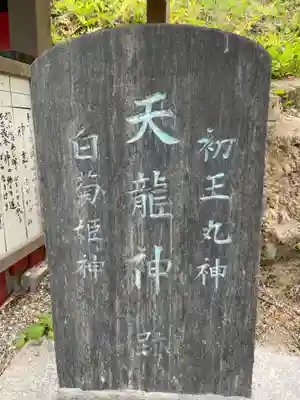 初王丸神
天龍神跡
白菊姫神